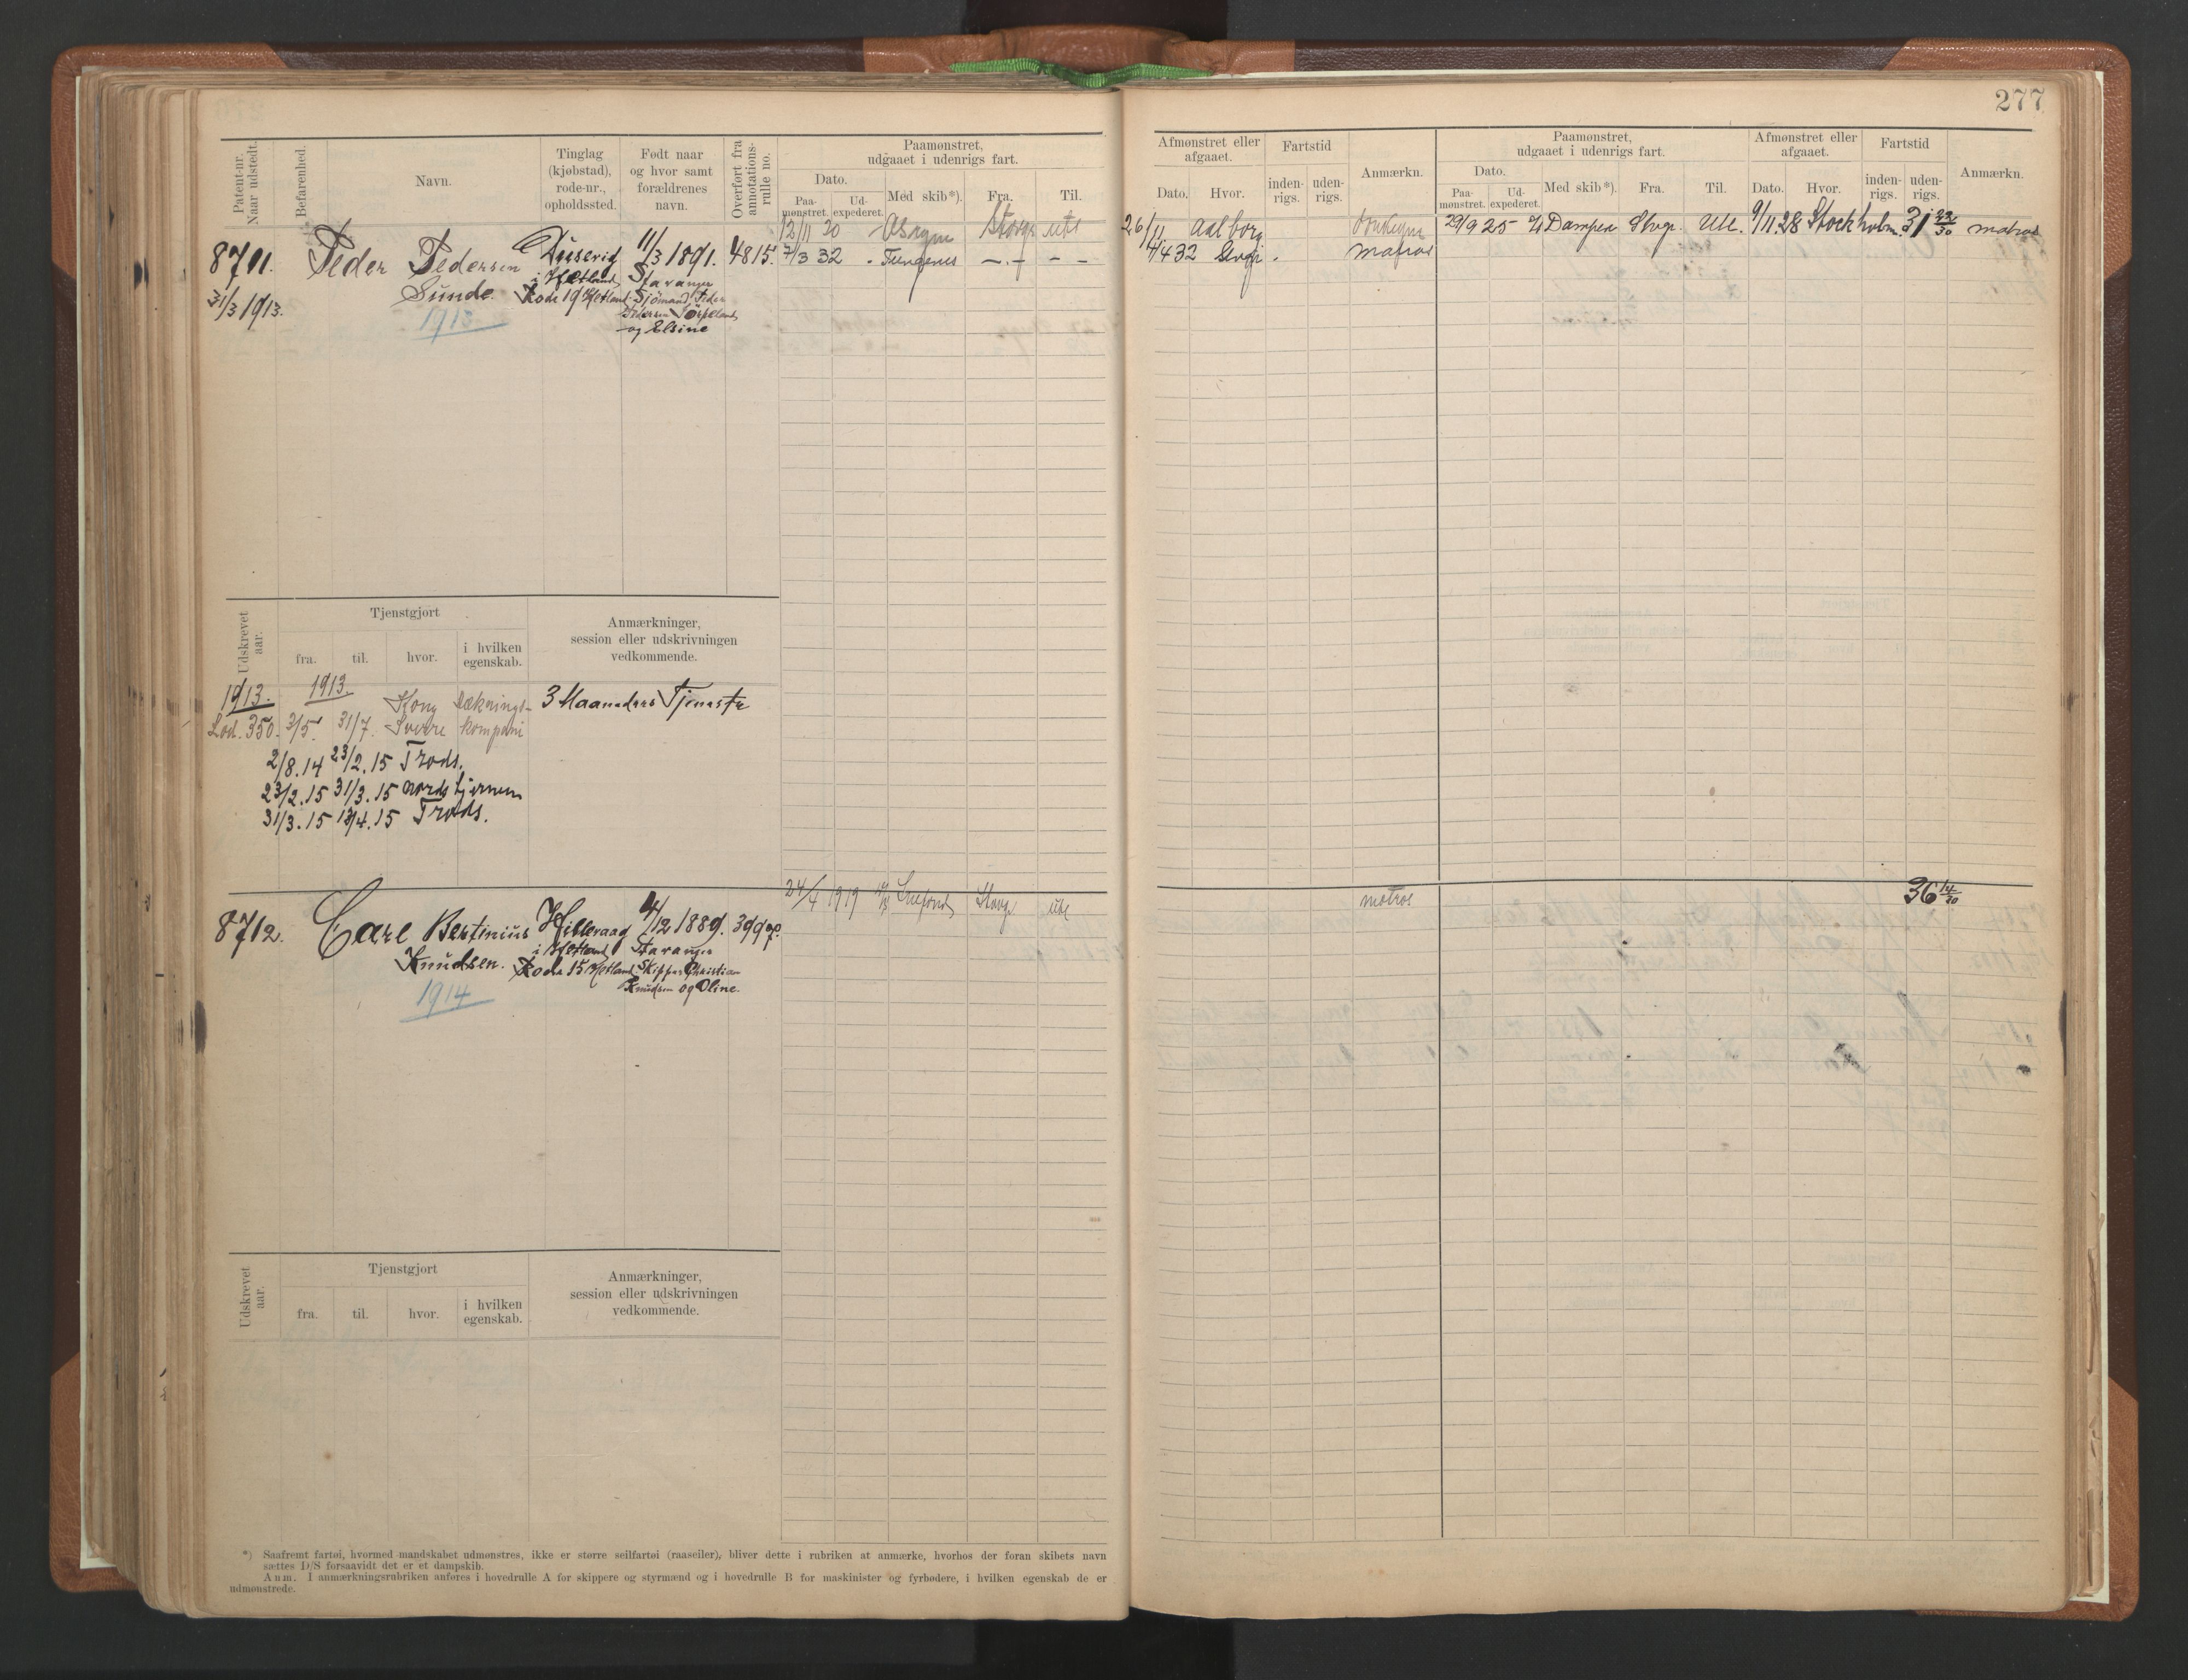 277
Patent-nr. Naar udstedt.
Befarenhed.
Navn.
Tinglag (kjøbstad), rode-nr., opholdssted.
Født naar og hvor samt forældrenes navn.
Overført fra annotations-rulle no.
Paamønstret, udgaaet i udenrigs fart.
Dato.
Paa-mønstret.
Ud-expederet.
Med skib*).
Fra.
Til.
Afmønstret eller afgaaet.
Dato.
Hvor.
Fartstid
inden-rigs.
uden-rigs.
Anmærkn.
Paamønstret, udgaaet i udenrigs fart.
Dato.
Paa-mønstret.
Ud-expederet.
Med skib*).
Fra.
Til.
Afmønstret eller afgaaet.
Dato.
Hvor.
Fartstid
inden-rigs.
uden-rigs.
Anmærkn.
12/11 20 Stavgr ute 26/11 Aalborg
29/9 25 Dampen Stvgr. Ute. 9/11 28 Stockholm. 31 22/30 matros
8711. Peder Pedersen Duservig 11/3 1891. 4815. 7/3 32 - Tungenes -.- - - 4/4 32 matros
31/3 1913. Sunde. i Hetland Stavanger
Rode 19 Hetland Sjömand Peder
1913 Pedersen Törpeland
og Elsine
Udskrevet aar.
Tjenstgjort
fra.
til.
hvor.
i hvilken egenskab.
Anmærkninger, session eller udskrivningen vedkommende.
1913. 1913. Kong Dæknings- 3 Maaneders Tjeneste
Lod. 350. 3/5. 31/7. Sverre kompani
2/8.14 23/2.15 Trods.
23/2.15 31/3.15 Nordstjernen
31/3.15 13/4.15 Trods.
24/4 1919 Stavgr. ute matros 36 14/30
8712. Carl Bertinius Hilleraag 4/12 1889. 399
Knudsen. i Hetland Stavanger
Rode 15 Hetland Skipper Christian
1914 Knudsen og Oline.
Udskrevet aar.
Tjenstgjort
fra.
til.
hvor.
i hvilken egenskab.
Anmærkninger, session eller udskrivningen vedkommende.
*) Saafremt fartøi, hvormed mandskabet udmønstres, ikke er større seilfartøi (raaseiler), bliver dette i rubriken at anmærke, hvorhos der foran skibets navn
sættes D/S forsaavidt det er et dampskib.
Anm. I anmærkningsrubriken anføres i hovedrulle A for skippere og styrmænd og i hovedrulle B for maskinister og fyrbødere, i hvilken egenskab de er
udmønstrede.